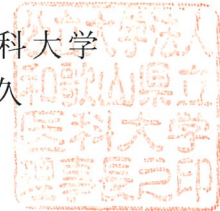 科大学
久
公立大学法人
和歌山県立
医科大学
理事長之印